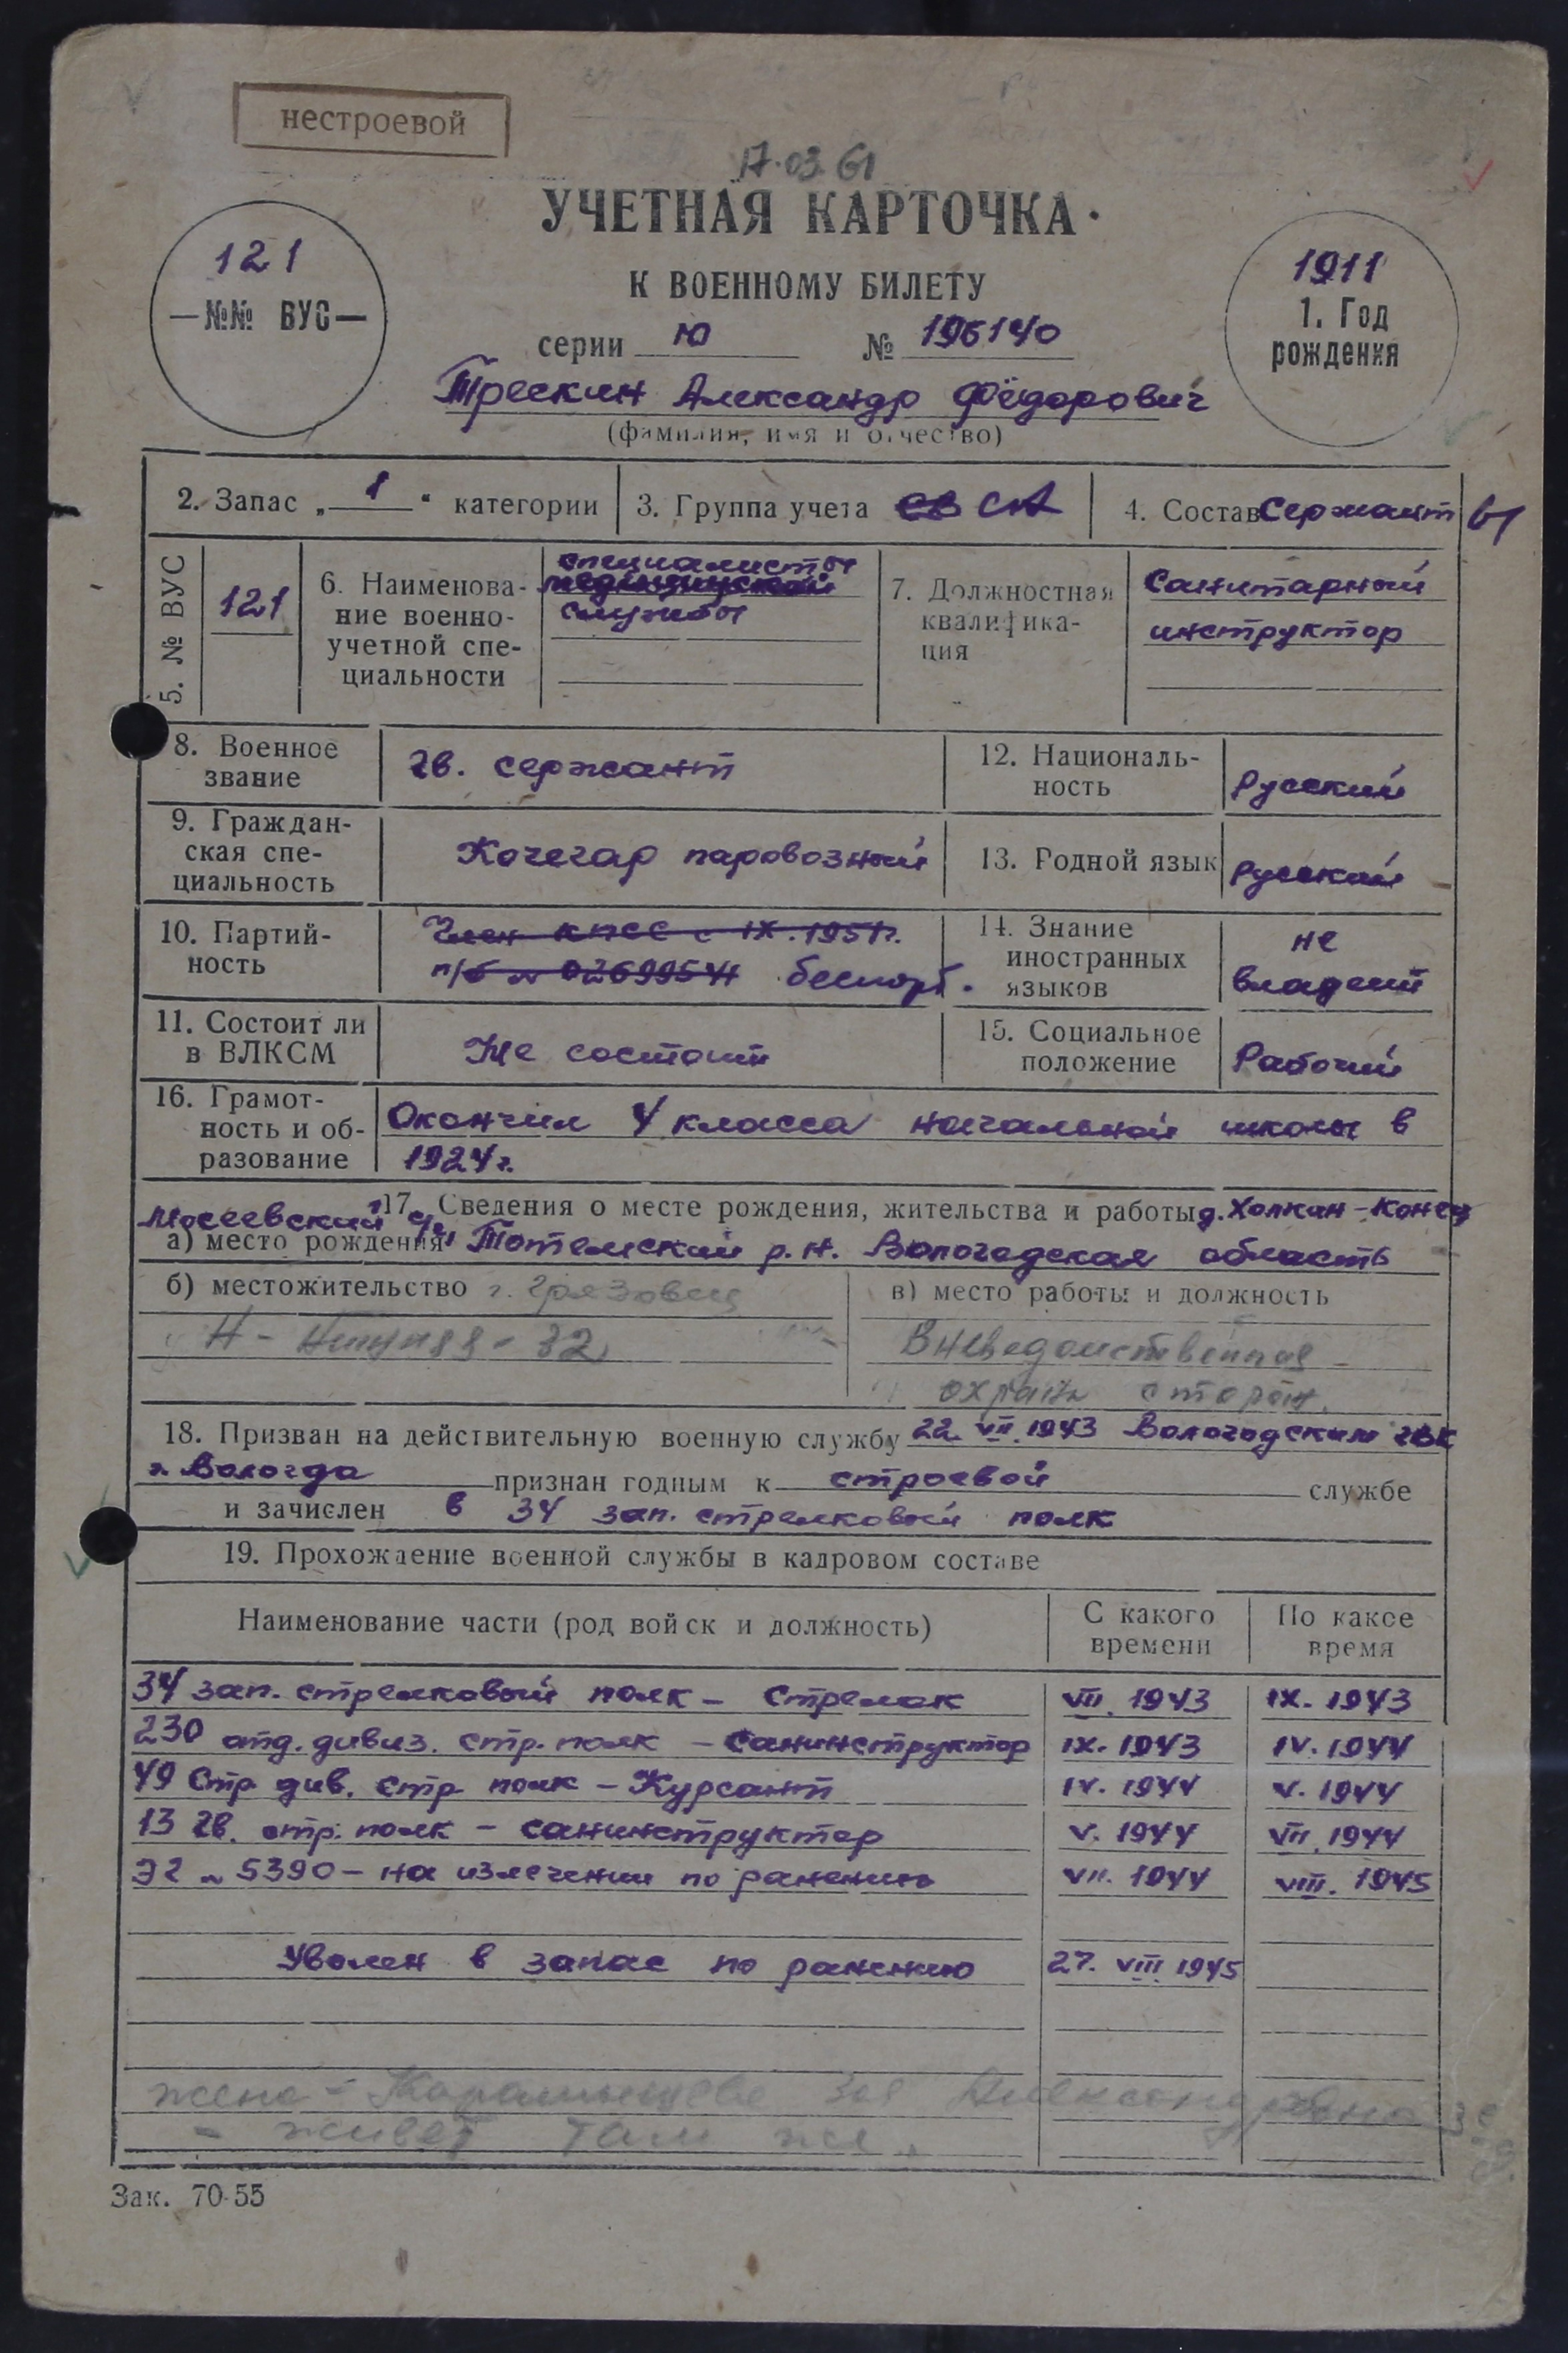 нестроевой
17.03.61
УЧЕТНАЯ КАРТОЧКА
К ВОЕННОМУ БИЛЕТУ
серии Ю № 196140
121
—№№ ВУС—
1911
1. Год
рождения
Трескин Александр Фёдорович
(фамилия, имя и отчество)
2. Запас „1“ категории
3. Группа учета СВ СА
4. Состав Сержанты
5. № ВУС
121
6. Наименова-
ние военно-
учетной спе-
циальности
специалисты
медицинской
службы
7. Должностная
квалифика-
ция
Санитарный
инструктор
8. Военное
звание
гв. сержант
12. Националь-
ность
Русский
9. Граждан-
ская спе-
циальность
Кочегар паровозный
13. Родной язык
Русский
10. Партий-
ность
Член КПСС с IX.1951г.
п/б № 02699544 беспарт.
14. Знание
иностранных
языков
не
владеет
11. Состоит ли
в ВЛКСМ
Не состоит
15. Социальное
положение
Рабочий
16. Грамот-
ность и об-
разование
Окончил 4 класса начальной школы в
1924г.
17. Сведения о месте рождения, жительства и работы д. Холкин-Конец
Мосеевский с/с
а) место рождения Тотемский р.н. Вологодская область
б) местожительство г. Грязовец
32
в) место работы и должность
Вневедомственная
охрана сторож.
18. Призван на действительную военную службу 22.VII.1943 Вологодским гвк
г. Вологда признан годным к строевой службе
и зачислен в 34 зап. стрелковый полк
19. Прохождение военной службы в кадровом составе
Наименование части (род войск и должность)
С какого
времени
По какое
время
34 зап. стрелковый полк – Стрелок VII.1943 IX.1943
230 отд. дивиз. стр. полк – Санинструктор IX.1943 IV.1944
49 Стр див. стр полк – Курсант IV.1944 V.1944
13 гв. стр. полк – санинструктор V.1944 VII.1944
ЭГ № 5390 – на излечении по ранению VII.1944 VIII.1945
Уволен в запас по ранению 27.VIII.1945
жена – Зоя Александровна
– живет там же.
Зак. 70-55